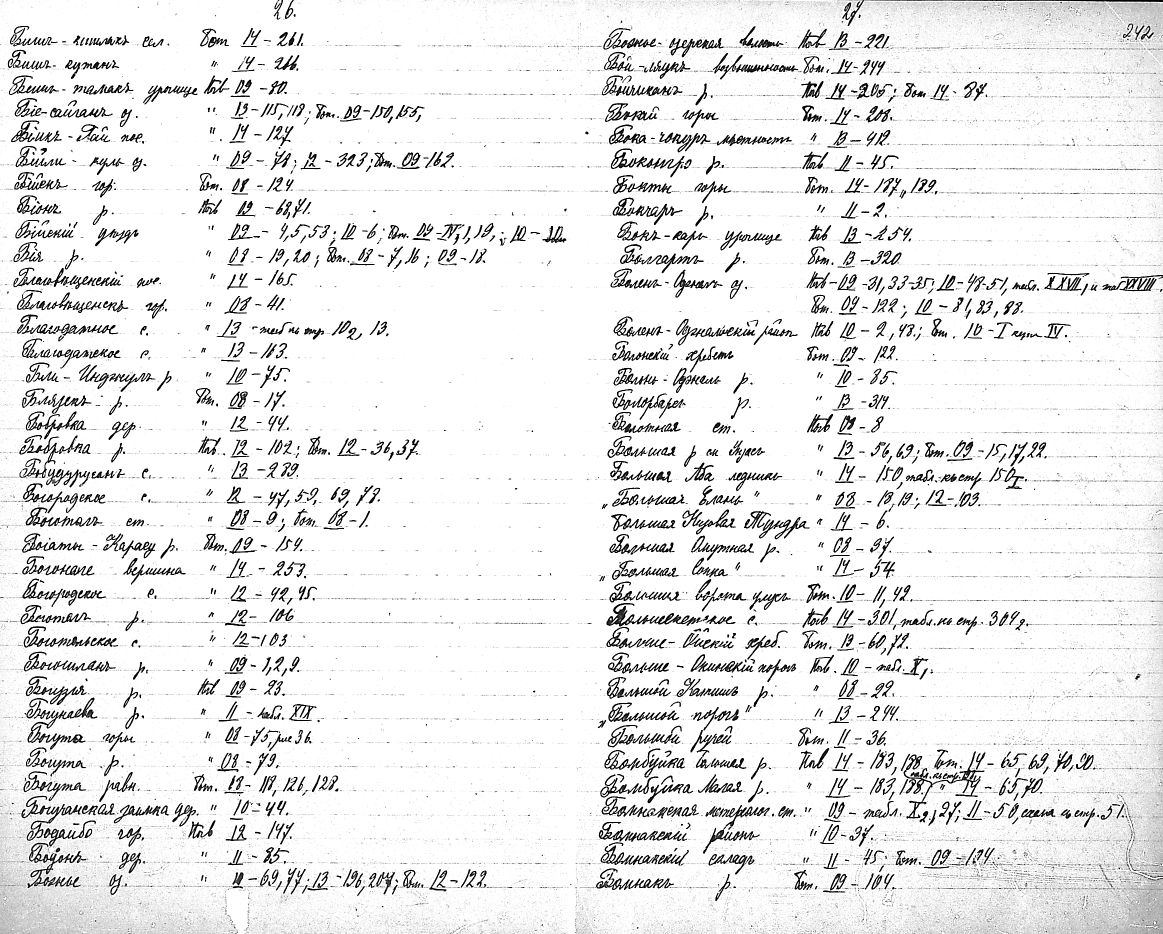 26.
Бишъ - кишлакъ сел. Бот 14 - 261.
Бишъ - кутанъ " 14 - 266.
Бешъ - тамакъ урочище Почв 09 - 80.
Біе - сайганъ оз. " 13 - 115, 118; Бот. 09 - 150, 155,
Біикъ - Тай пос. " 14 - 127
Бійли - куль оз. " 09 - 78; 12 - 323; Бот. 09 - 162.
Бійскъ гор. Бот. 08 - 124.
Біонъ р. Почв 09 - 68, 71.
Бійскій уѣздъ " 09 - 4, 5, 53; 10 - 6; Бот. 09 - IV, 1, 19, ; 10 -
Бія р. " 08 - 19, 20; Бот. 08 - 7, 16; 09 - 18.
Благовѣщенскій пос. " 14 - 165.
Благовѣщенскъ гор. " 08 - 41.
Благодатное с. " 13 - табл. къ стр. 10₂, 13.
Благодатское с. " 13 - 163.
Бли - Инджуль р " 10 - 75.
р. Бот. 08 - 17.
Бобровка дер. " 12 - 44.
Бобровка р. Почв. 12 - 102; Бот. 12 - 36, 37.
с. " 13 - 289.
Богородское с. " 12 - 47, 59, 69, 78.
Боготолъ ст. " 08 - 9; Бот 08 - 1.
Богаты - Карасу р. Бот. 09 - 154.
вершина " 14 - 253.
Богородское с. " 12 - 42, 45.
Боготолъ р. " 12 - 106
Боготольское с. " 12 - 103
р. " 09 - 1, 2, 9.
р. Почв 09 - 23.
Богунаева р. " 11 - табл. XIX.
Богута горы " 08 - 75, рис 36.
Богута р. " 08 - 79.
Богута равн. Бот. 08 - 118, 126, 128.
Богучанская заимка дер. " 10 - 44.
Бодайбо гор. Почв 12 - 147.
Бодонъ дер. " 11 - 85.
Божье оз. " 10 - 69, 77; 13 - 196, 207; Бот. 12 - 122.
27.
242
Божье - озерская волость Почв 13 - 221
возвышенность Бот. 14 - 244
р. Почв 14 - 205; Бот 14 - 87.
горы Бот. 14 - 208.
мѣстность " 13 - 412.
р. Почв 11 - 45.
Бокты горы Бот. 14 - 187, 189.
Бокчаръ р. " 11 - 2.
Бокъ - кара урочище Почв 13 - 254.
р. Бот. 13 - 320
Болень - Оджалъ оз. Почв - 09 - 31, 33 - 35; 10 - 48 - 51, табл. XXVII, и таб XXVIII.
Бот. 09 - 122; 10 - 81, 83, 88.
Болень - Оджальскій районъ Почв 10 - 2, 48; Бот. 10 - I карта IV.
хребетъ Бот. 09 - 122.
р. " 10 - 85.
р. " 13 - 314
Болотная ст. Почв 09 - 8
Большая р " 13 - 56, 69; Бот. 09 - 15, 17, 22.
Большая Аба ледникъ " 14 - 150, табл. къ стр 150 I.
„Большая Елань" " 08 - 18, 19; 12 - 103.
Большая Низовая Тундра " 14 - 6.
Большая р. " 08 - 37.
„Большая сопка" " 14 - 54
Большія ворота улусъ Бот. 10 - 11, 42.
с. Почв 14 - 301, табл. къ стр. 304₂.
Больше - Ойскій хреб. Бот. 13 - 60, 72.
Больше - Окинскій порогъ Почв. 10 - табл. X,
Большой р. " 08 - 22.
„Большой порогъ" " 13 - 244.
Большой ручей Бот. 11 - 36.
Бомбуйка Большая р. Почв 14 - 183, 188, Бот. 14 - 65, 69, 70, 90.
Бомбуйка Малая р. " 14 - 183, 188, " 14 - 65, 70.
Бомнакская метеорол. ст. " 09 - табл. X₂, 27; 11 - 50, схема къ стр. 51.
Бомнакскій районъ " 10 - 37.
Бомнакскій складъ " 11 - 45; Бот. 09 - 134
Бомнакъ р. Бот. 09 - 104.